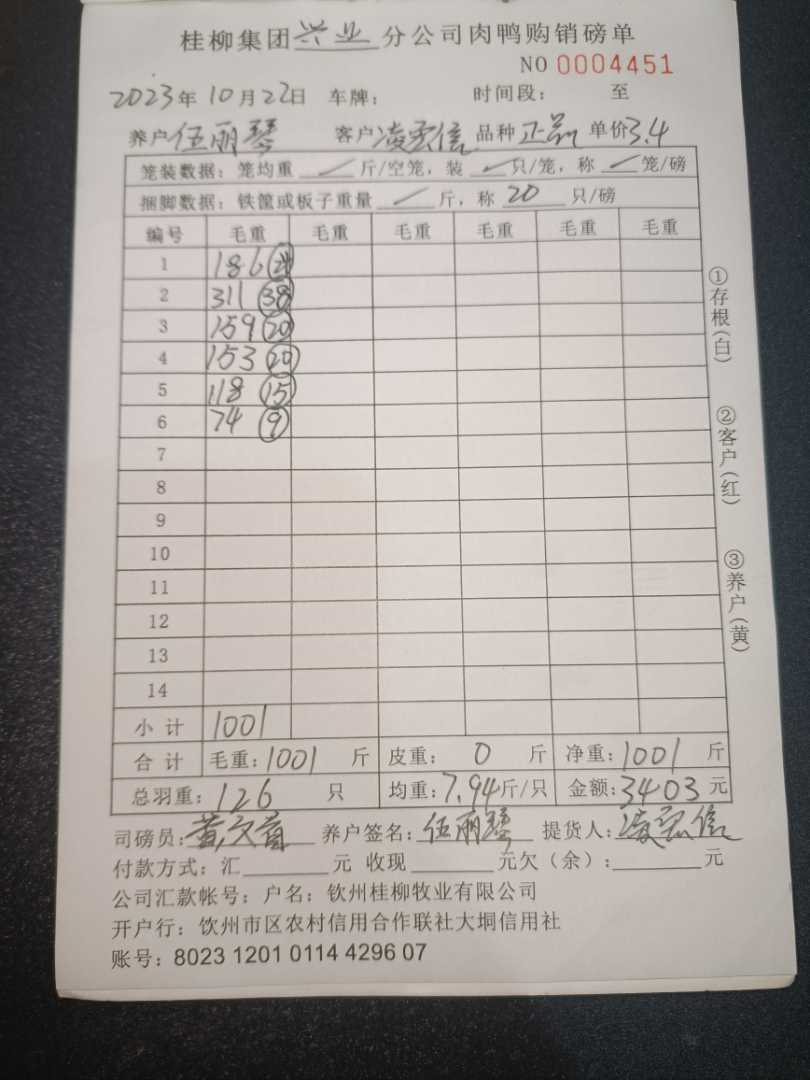 桂柳集团兴业分公司肉鸭购销磅单
NO 0004451
2023年10月22日 车牌： 时间段： 至
养户伍丽琴 客户凌 信 品种正品 单价3.4
笼装数据：笼均重 斤/空笼，装 只/笼，称 笼/磅
捆脚数据：铁筐或板子重量 斤，称20只/磅
编号 毛重 毛重 毛重 毛重 毛重 毛重
1 186 24
2 311 38
3 159 20
4 153 20
5 118 15
6 74 9
7
8
9
10
11
12
13
14
小计 1001
合计 毛重：1001斤 皮重：0斤 净重：1001斤
总羽重：126只 均重：7.94斤/只 金额：3403元
司磅员：黄文 养户签名：伍丽琴 提货人：凌 信
付款方式：汇 元 收现 元欠（余）： 元
公司汇款帐号：户名：钦州桂柳牧业有限公司
开户行：饮州市区农村信用合作联社大垌信用社
账号：8023 1201 0114 4296 07
①存根（白）
②客户（红）
③养户（黄）